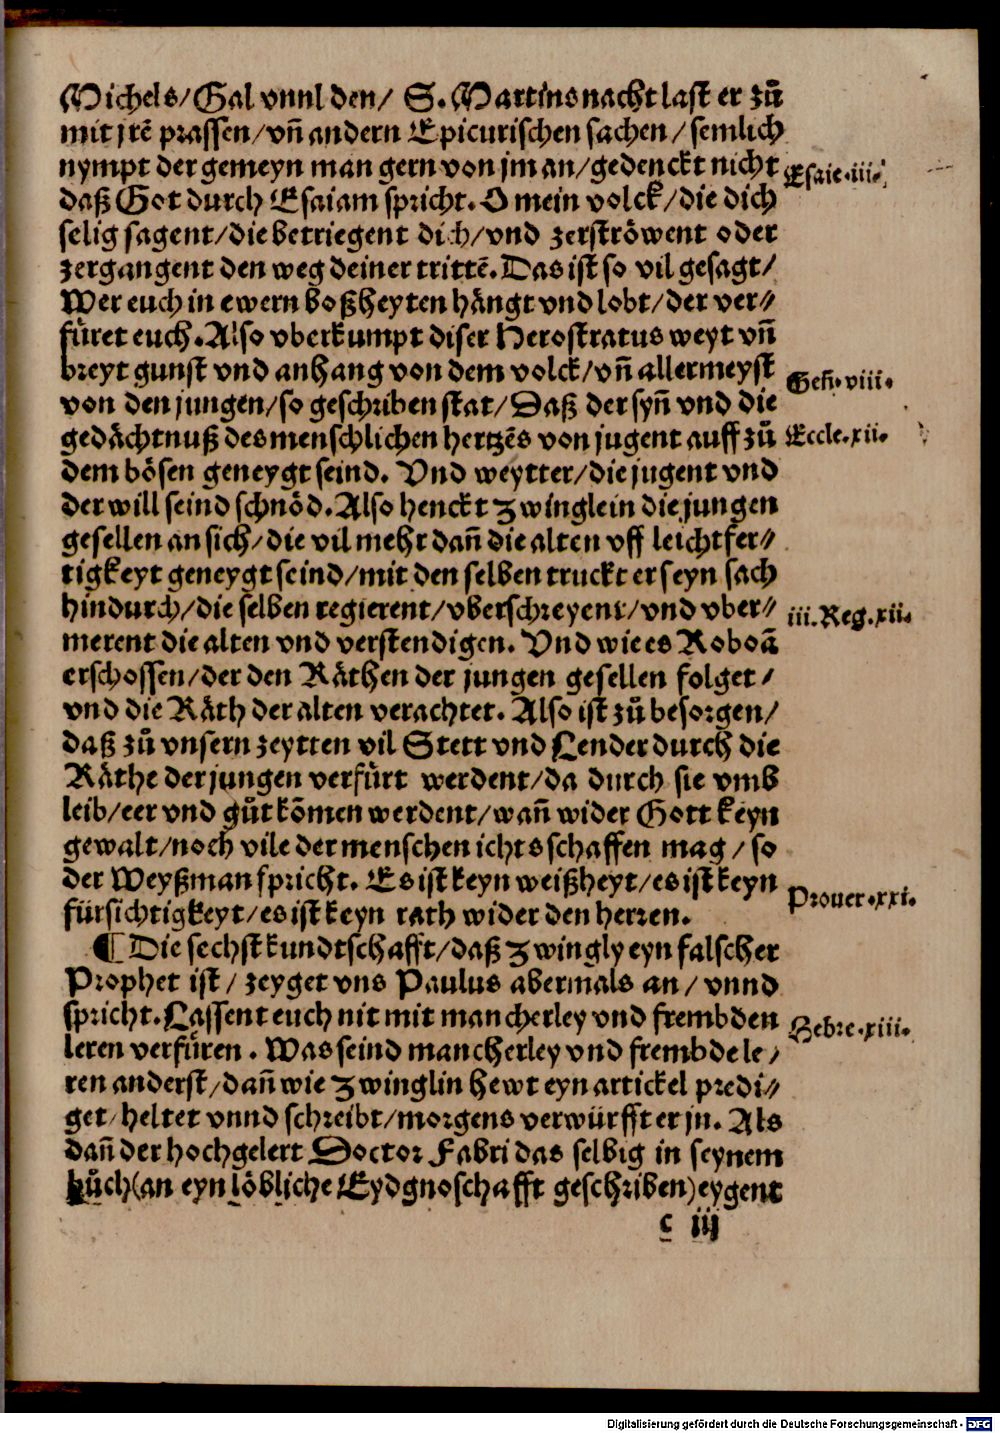 Michels/Gal vnnl den/ S. Martins nacht last er zů
mit jrē prassen/vñ andern Epicurischen sachen/semlich
nympt der gemeyn man gern von jm an/gedenckt nicht
Esaie.iii.
daß Got durch Esaiam spricht. O mein volck/die dich
selig sagent/die betriegent dich/vnd zerströwent oder
zergangent den weg deiner trittē. Das ist so vil gesagt/
Wer euch in ewern boßheyten hängt vnd lobt/der ver⸗
füret euch. Also vberkumpt diser Herostratus weyt vñ
breyt gunst vnd anhang von dem volck/vñ allermeyst
Geñ.viii.
von den jungen/so geschriben stat/Daß der syñ vnd die
gedächtnuß des menschlichen hertzēs von jugent auff zů
Eccle.xii.
dem bösen geneygt seind. Vnd weytter/die jugent vnd
der will seind schnöd. Also henckt Zwinglein die jungen
gesellen an sich/die vil mehr dañ die alten vff leichtfer⸗
tigkeyt geneygt seind/mit den selben truckt er seyn sach
hindurch/die selben regierent/vberschreyent/vnd vber⸗
iii.Reg.xii.
merent die alten vnd verstendigen. Vnd wie es Roboā
erschossen/der den Räthen der jungen gesellen folget/
vnd die Räth der alten verachtet. Also ist zů besorgen/
daß zů vnsern zeytten vil Stett vnd Lender durch die
Räthe der jungen verfürt werdent/da durch sie vmb
leib/eer vnd gůt kōmen werdent/wañ wider Gott keyn
gewalt/noch vile der menschen ichts schaffen mag/so
der Weyßman spricht. Es ist keyn weißheyt/es ist keyn
Prouer.xxi.
fürsichtigkeyt/es ist keyn rath wider den herren.
¶ Die sechst kundtschafft/daß Zwingly eyn falscher
Prophet ist/ zeyget vns Paulus abermals an/ vnnd
spricht. Lassent euch nit mit mancherley vnd frembden
Hebre.xiii.
leren verfüren. Was seind mancherley vnd frembde le⸗
ren anderst/dañ wie Zwinglin hewt eyn artickel predi⸗
get/heltet vnnd schreibt/morgens verwürfft er jn. Als
dañ der hochgelert Doctor Fabri das selbig in seynem
bůch(an eyn löbliche Eydgnoschafft geschriben)eygent
c iij
Digitalisierung gefördert durch die Deutsche Forschungsgemeinschaft - DFG